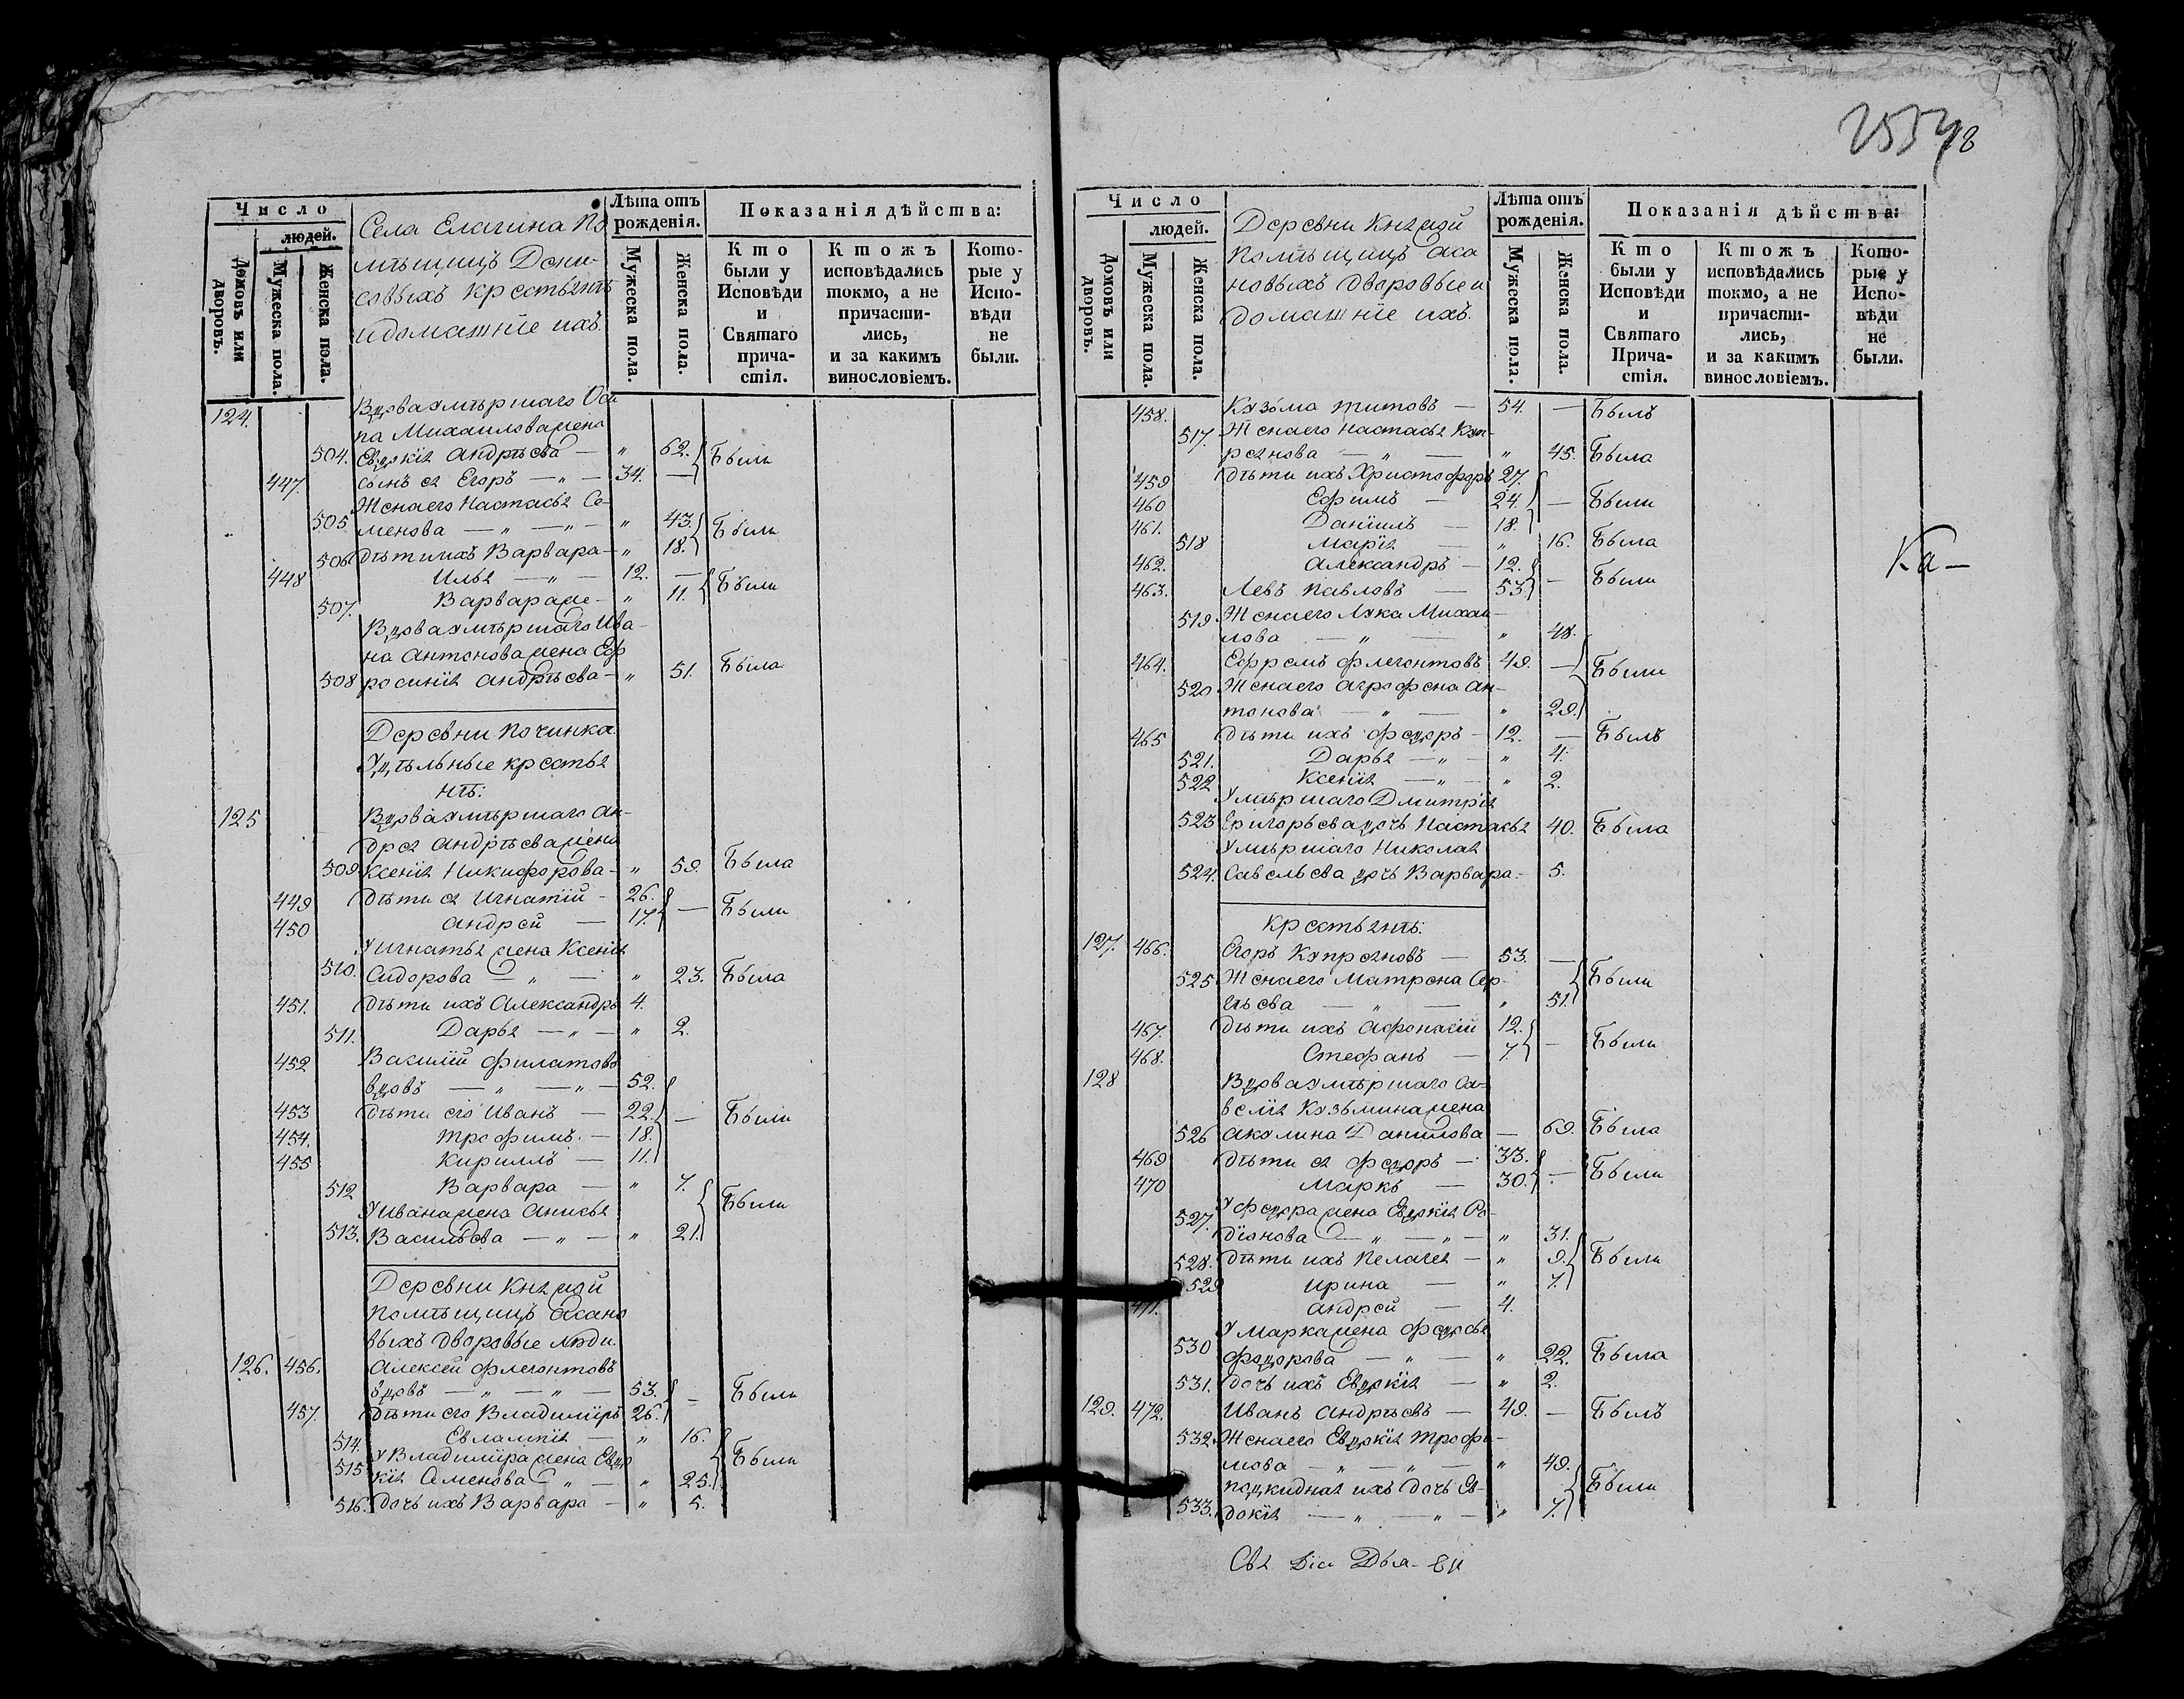 Число
людей.
Домовъ или дворовъ.
Мужеска пола.
Женска пола.
Села Елагина По
мѣщицъ Дени-
совыхъ крестьянѣ
идомашніе ихъ.
Лѣта отъ рожденія.
Мужеска пола.
Женска пола.
Показанія дѣйства:
Кто были у Исповѣди и Святаго прича-стія.
Ктожъ исповѣдались токмо, а не причасти-лись, и за какимъ винословіемъ.
Кото-рые у Испо-вѣди не были.
124. Вдоваумѣршаго Оси
па Михайловажена
504. Евдокія Андрѣева — „ 62. Были
447. сынъ ея Егоръ — „ — 34. —
Женаего Настасья Се-
505 менова — „ — „ — „ 43. Были
506 дѣтиихъ Варвара — „ 18.
448 Илья — „ — 12. — Были
507. Варвараже — „ 11.
Вдоваумѣршаго Ива-
на Антоноважена Еф
508 росинія Андрѣева — „ 51. Была
Деревни Починка
Удѣльные крестья
нѣ:
125 Вдоваумѣршаго Ан-
дрея Андрѣеважена
509 Ксенія Никифорова — „ 59. Была
449 дѣти ея Игнатій — 26. — Были
450 Андрей — 17.
УИгнатья жена Ксенія
510. Сидорова — „ — „ 23. Была
451. дѣти ихъ Александръ 4.
511. Дарья — „ — „ 2.
452 Василій Филатовъ
вдовъ — „ — „ — 52.
453 дѣти его Иванъ — 22. — Были
454. Трофимъ. — 18.
455 Кириллъ — 11.
512 Варвара — „ 7. Были
УИванажена Анисья
513. Васильева — „ — „ 21.
Деревни Княжой
помѣщицъ Асано
выхъ дворовые люди.
126. 456. Алексей Флегонтовъ
вдовъ — „ — „ — 53. — Были
457. дѣтиего Владиміръ 26.
514. Евлампія — „ 16. Были
515 УВладиміра жена Евдо
кія Семенова — „ — „ 25.
516. Дочь ихъ Варвара — „ 5.
Число
людей.
Домовъ или дворовъ.
Мужеска пола.
Женска пола.
Деревни Княжой
помѣщицъ Аса
новыхъ дворовыеи
домашніе ихъ.
Лѣта отъ рожденія.
Мужеска пола.
Женска пола.
Показанія дѣйства:
Кто были у Исповѣди и Святаго Прича-стія.
Ктожъ исповѣдались токмо, а не причасти-лись, и за какимъ винословіемъ.
Кото-рые у Испо-вѣди не были.
458. Кузьма Титовъ — 54. — Былъ
517. Женаего Настасья Куп-
реянова — „ — „ 45. Была
459 дѣти ихъ Христофоръ 27.
460 Ефимъ — 24. — Были
461. Даніилъ — 18.
518 Марія — „ 16. Была
462. Александръ — 12. — Были
463. Левъ Павловъ — 53.
519. Женаего Лука Михай-
лова — „ — „ 48.
464. Ефремъ Флегонтовъ 49. — Были
520 Женаего Агрофена Ан-
тонова — „ — „ 29.
465 дѣти ихъ Федоръ — 12. — Былъ
521. Дарья — „ — „ 4.
522 Ксенія — „ — „ 2.
Умѣршаго Дмитрія
523 Григорьевадочь Настасья 40. Была
Умѣршаго Николая
524. Савельева дочь Варвара. — 5.
крестьянѣ:
127. 466. Егоръ Купреяновъ — 53. — Были
525 Женаего Матрена Сер-
гѣева — „ — „ 51.
467. дѣти ихъ Афонасій 12. — Были
468. Стефанъ — 7
128 Вдоваумѣршаго Са-
велія Кузьминажена
526 Акулина Данилова — 69. Была
469 дѣти ея Федоръ — 33. — Были
470 Маркъ — 30.
УФедора жена Евдокія Ро-
527. діонова — „ — „ — „ 31. Были
528. дѣти ихъ Пелагея — „ 9.
529 Ирина — „ 7.
471. Андрей — 4.
УМаркажена Федосья
530 Федорова — „ — „ 22. Была
531. Дочь ихъ Евдокія — „ 2.
129. 472. Иванъ Андрѣевъ — 49. — Былъ
532. Женаего Евдокія Трофи-
мова — „ — „ — „ 49. Были
подкидная ихъ дочь Ев-
533. докія — „ — „ — „ 7.
Ка-